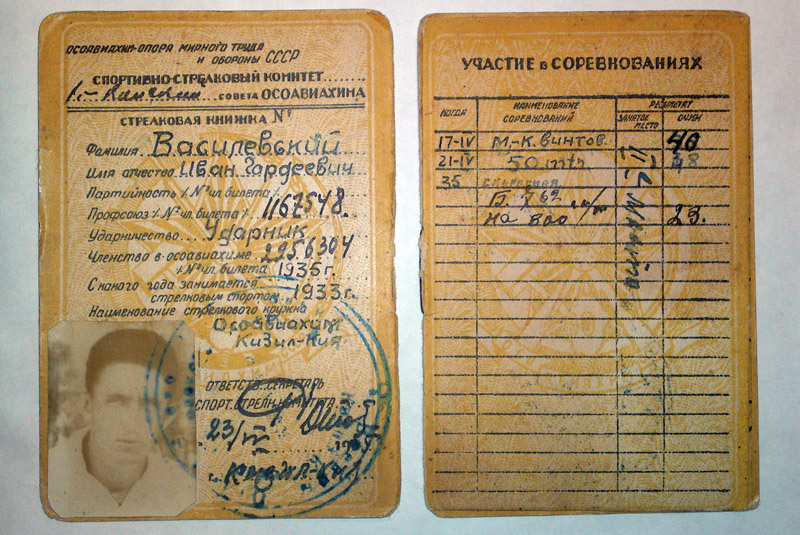 ОСОАВИАХИМ-ОПОРА МИРНОГО ТРУДА
И ОБОРОНЫ СССР
СПОРТИВНО-СТРЕЛКОВЫЙ КОМИТЕТ
СОВЕТА ОСОАВИАХИМА
СТРЕЛКОВАЯ КНИЖКА №
Фамилия Василевский
Имя отчество Иван Гордеевич
Партийность (№ чл. билета)
Профсоюз (№ чл. билета) 1167548.
Ударничество Ударник
Членство в осоавиахиме 2956304
(№ чл. билета) 1935г.
С какого года занимается
стрелковым спортом 1933г.
Наименование стрелкового кружка
Осоавиахим
Кизил-Кия
ОТВЕТСТВ. СЕКРЕТАРЬ
СПОРТ. СТРЕЛК. КОМИТЕТА
23/IV
г. Кизил-Кия
УЧАСТИЕ в СОРЕВНОВАНИЯХ
КОГДА НАИМЕНОВАНИЕ СОРЕВНОВАНИЙ РЕЗУЛЬТАТ
ЗАНЯТОЕ МЕСТО ОЧКИ
17-IV М.-К. Винтов. 40
21-IV 50 mtr
35
на 800 23.
II е место